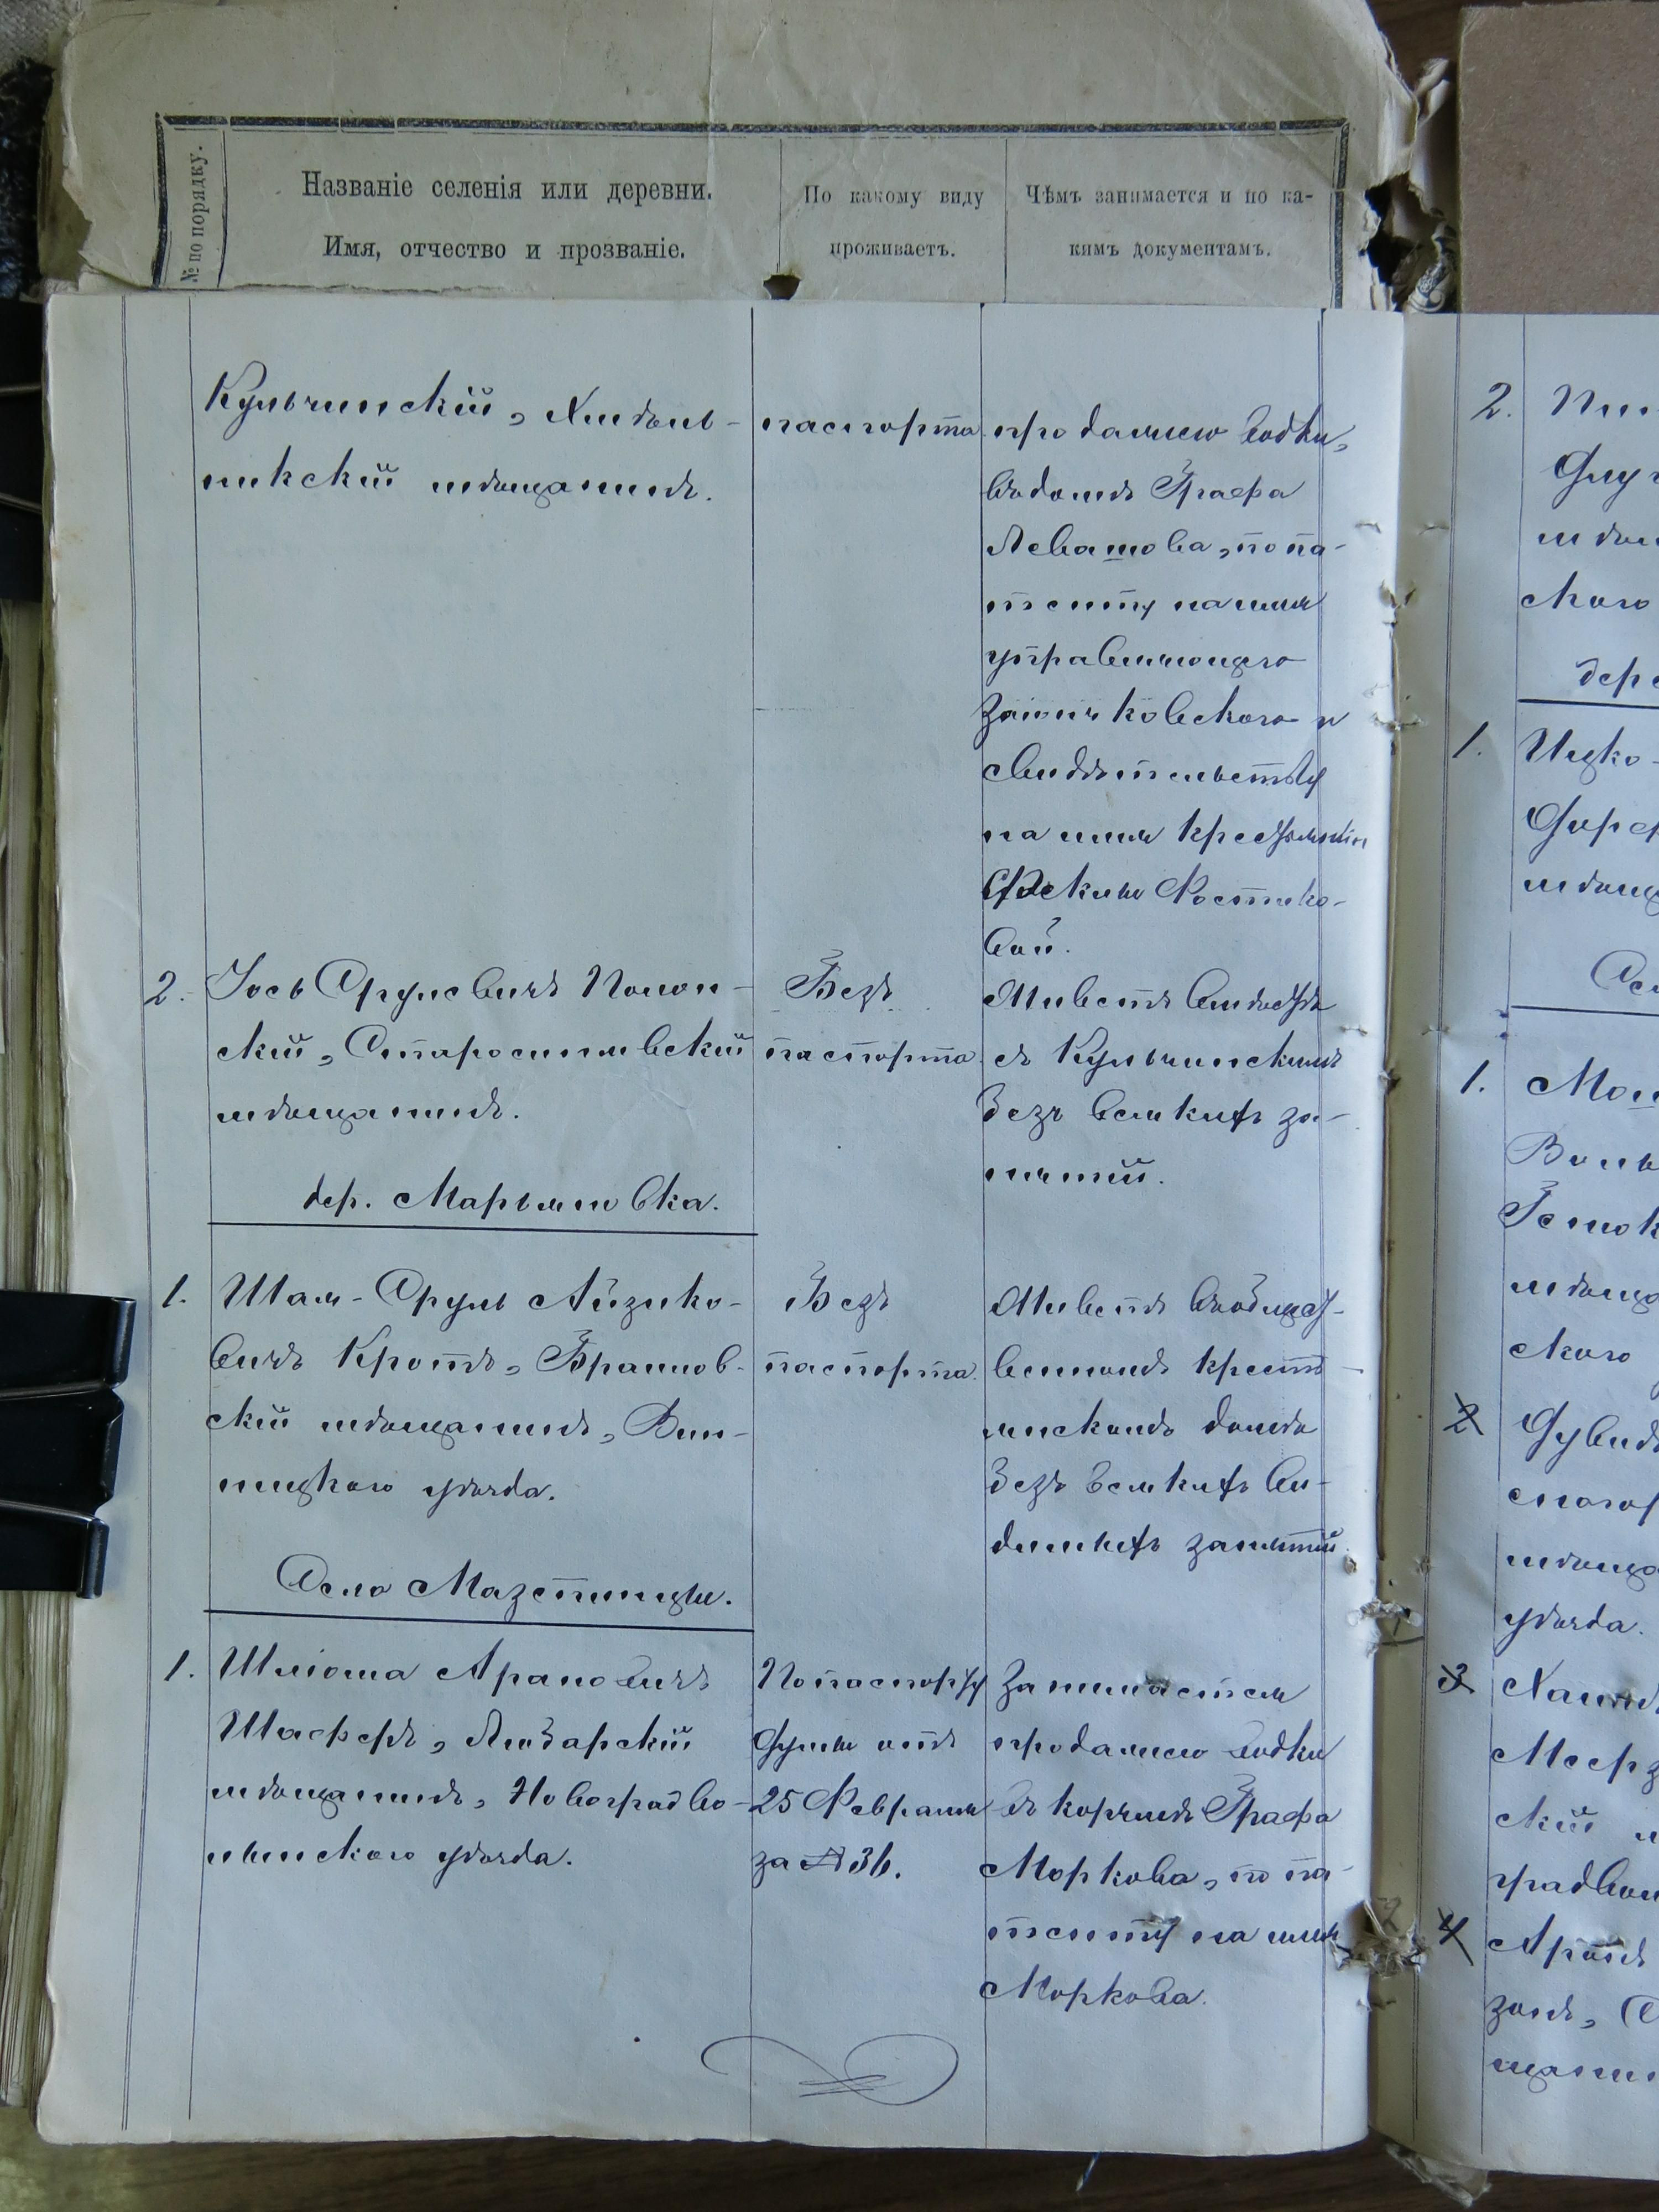 № по порядку.
Названіе селенія или деревни.
Имя, отчество и прозваніе.
По какому виду
проживаетъ.
Чѣмъ занимается и по ка-
кимъ документамъ.
Кульчинскій, Хмѣль-
никскій мѣщанинъ.
паспорта
продажею водки,
въ домѣ Графа
Левашова, по па-
тенту на имя
управляющаго
и
свидѣтельству
на имя
вой.
2. Іось Срулевичъ Полон-
скій, Старосинявскій
мѣщанинъ.
Безъ
паспорта
Живетъ вмѣстѣ
съ Кульчинскимъ
безъ всякихъ за-
нятій.
дер. Марьяновка.
1. Шая-Сруль Айзико-
вичъ Кротъ, Браилов-
скій мѣщанинъ, Вин-
ницкаго уѣзда.
Безъ
паспорта.
Живетъ въ общест-
венномъ кресть
янскомъ домѣ
безъ всякихъ ви-
димыхъ занятій.
Село Мазепинцы.
1. Шліома Ароновичъ
Шаферъ, Любарскій
мѣщанинъ, Новоградво-
лынскаго уѣзда.
По паспорту
Думы отъ
25 Февраля
за № 36.
Занимается
продажею водки
въ корчмѣ Графа
Моркова, по па-
тенту на имя
Моркова.
2.
мѣщ
скаго
дер
1. Ицко-
мѣщ
Сел
1.
мѣща
скаго
2
мѣща
уѣзда.
3
скій м
градвол
4
щани